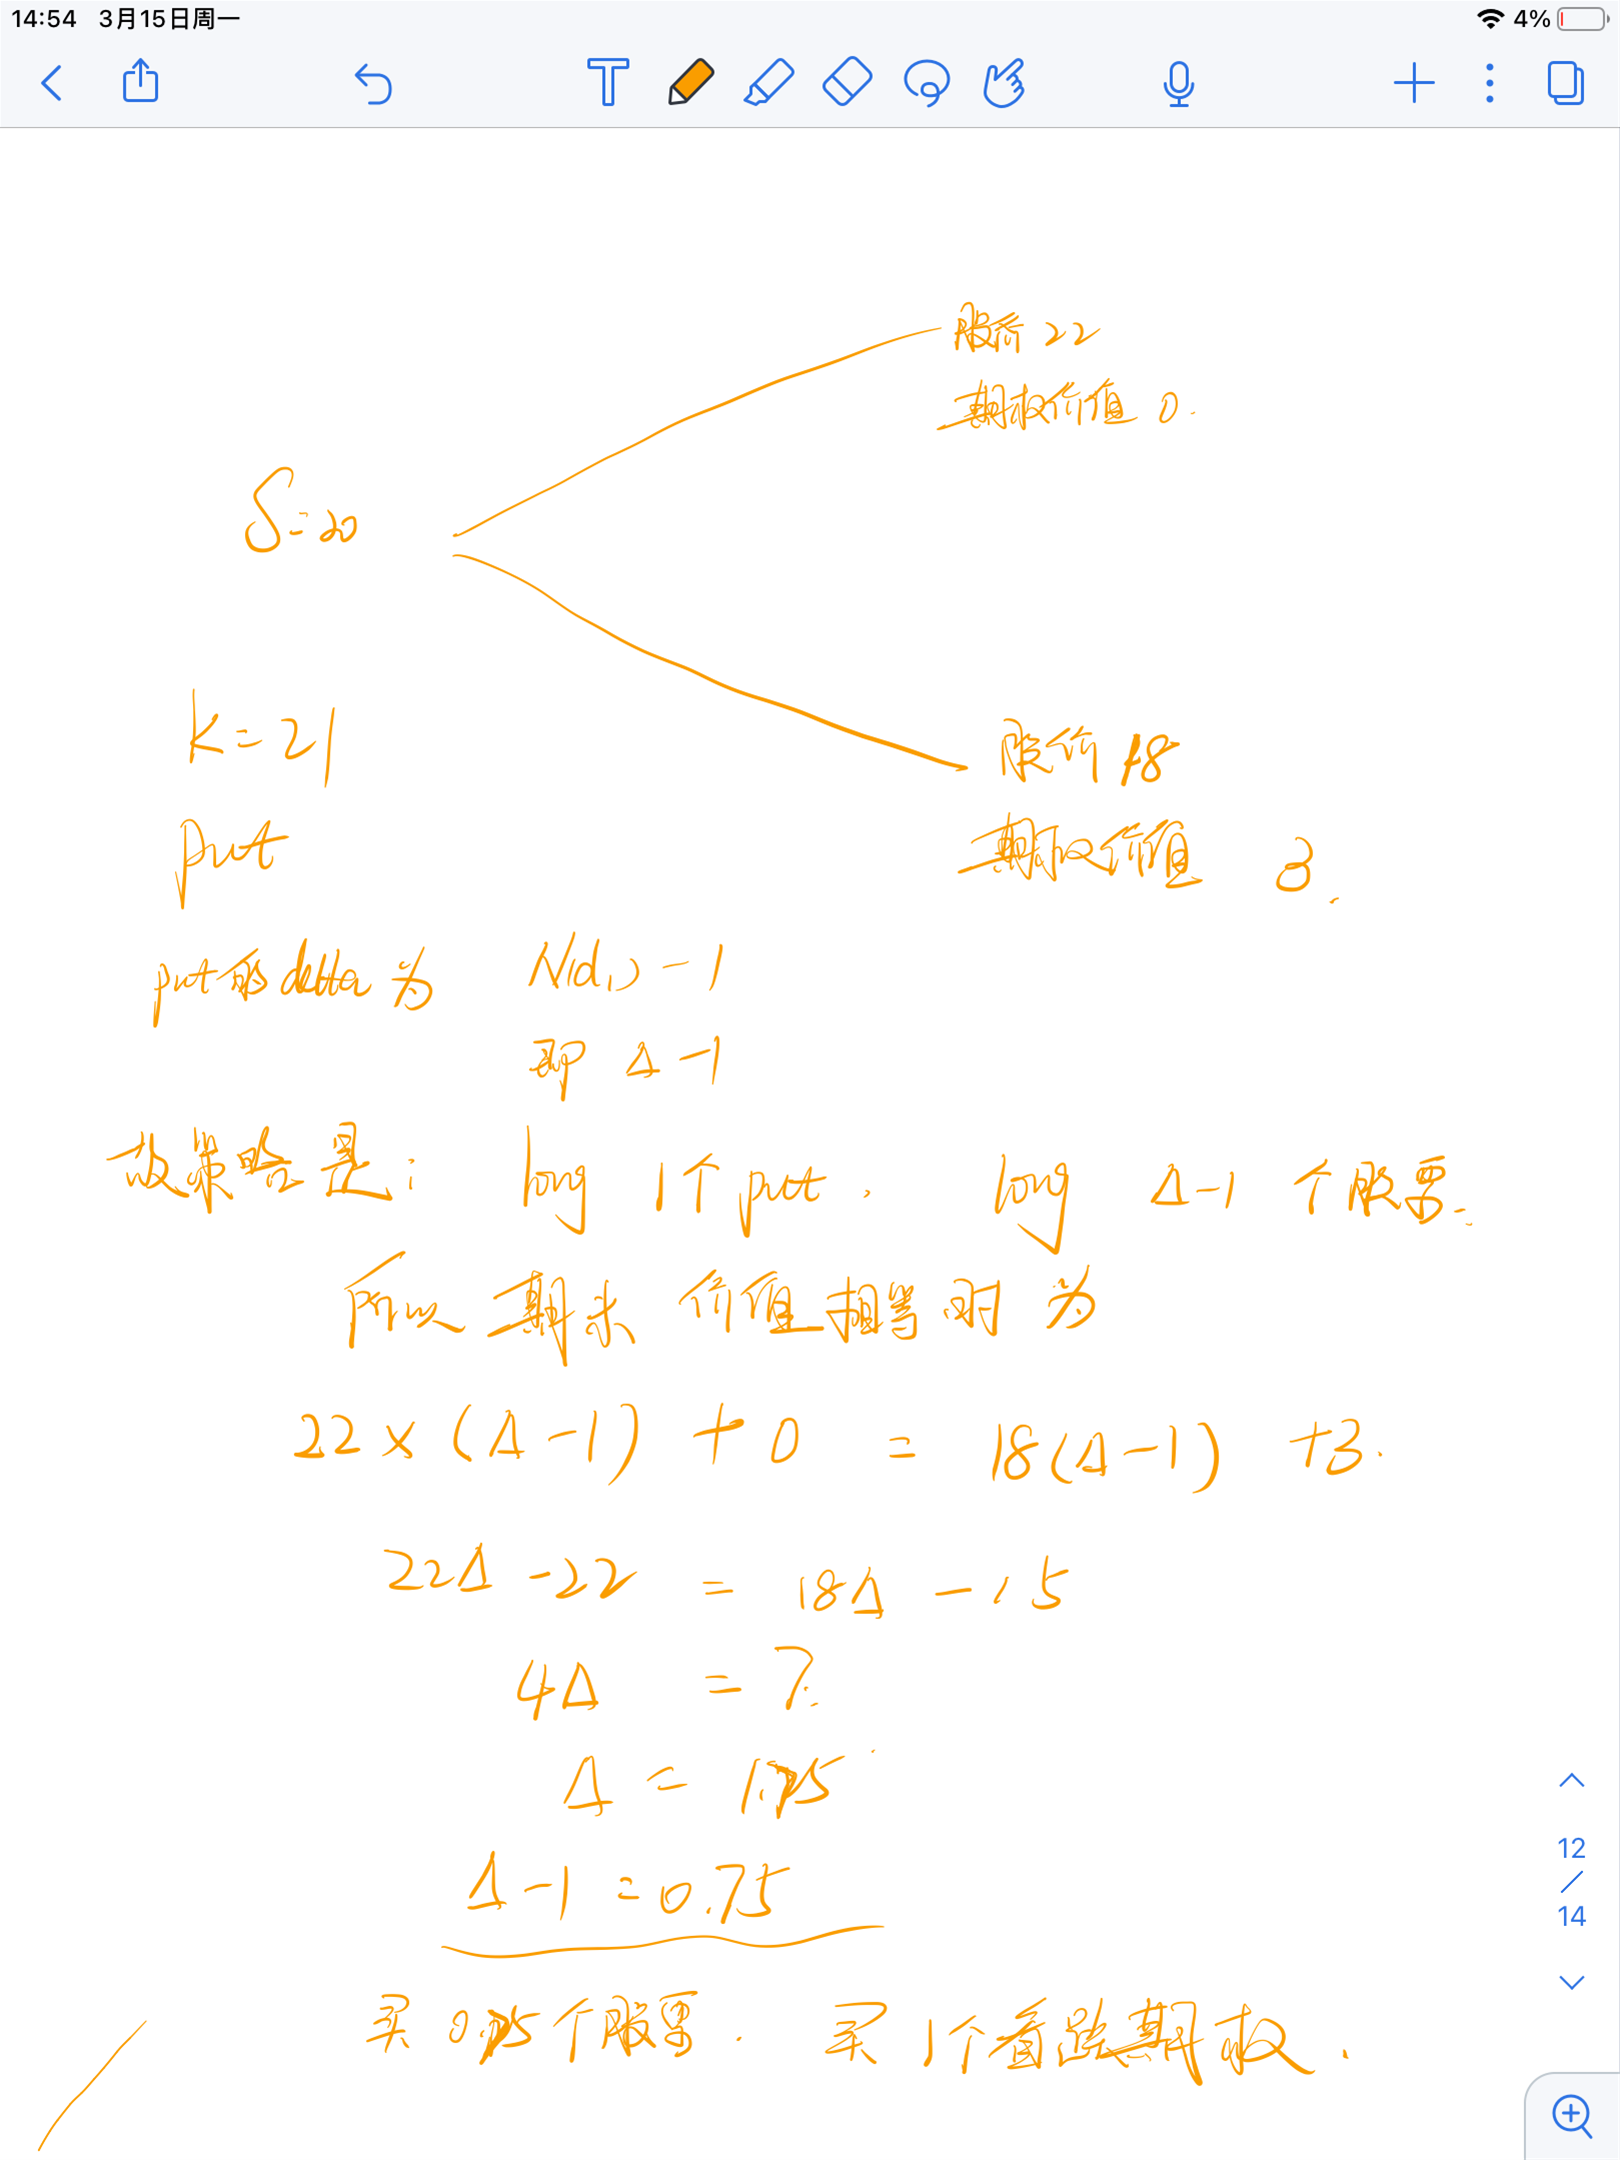 14:54 3月15日周一
4%
股价 22
期权价值 0.
S=20
K=21
股价 18
put
期权价值 3.
put的delta为 N(d1)-1
即 Δ-1
故策略是: long 1个put. long Δ-1 个股票.
所以期末 价值相等时为
22×(Δ-1)+0 = 18(Δ-1) +3.
22Δ-22 = 18Δ-15
4Δ = 7.
Δ = 1.75
Δ-1=0.75
买 0.75个股票. 买1个看跌期权.
12
/
14